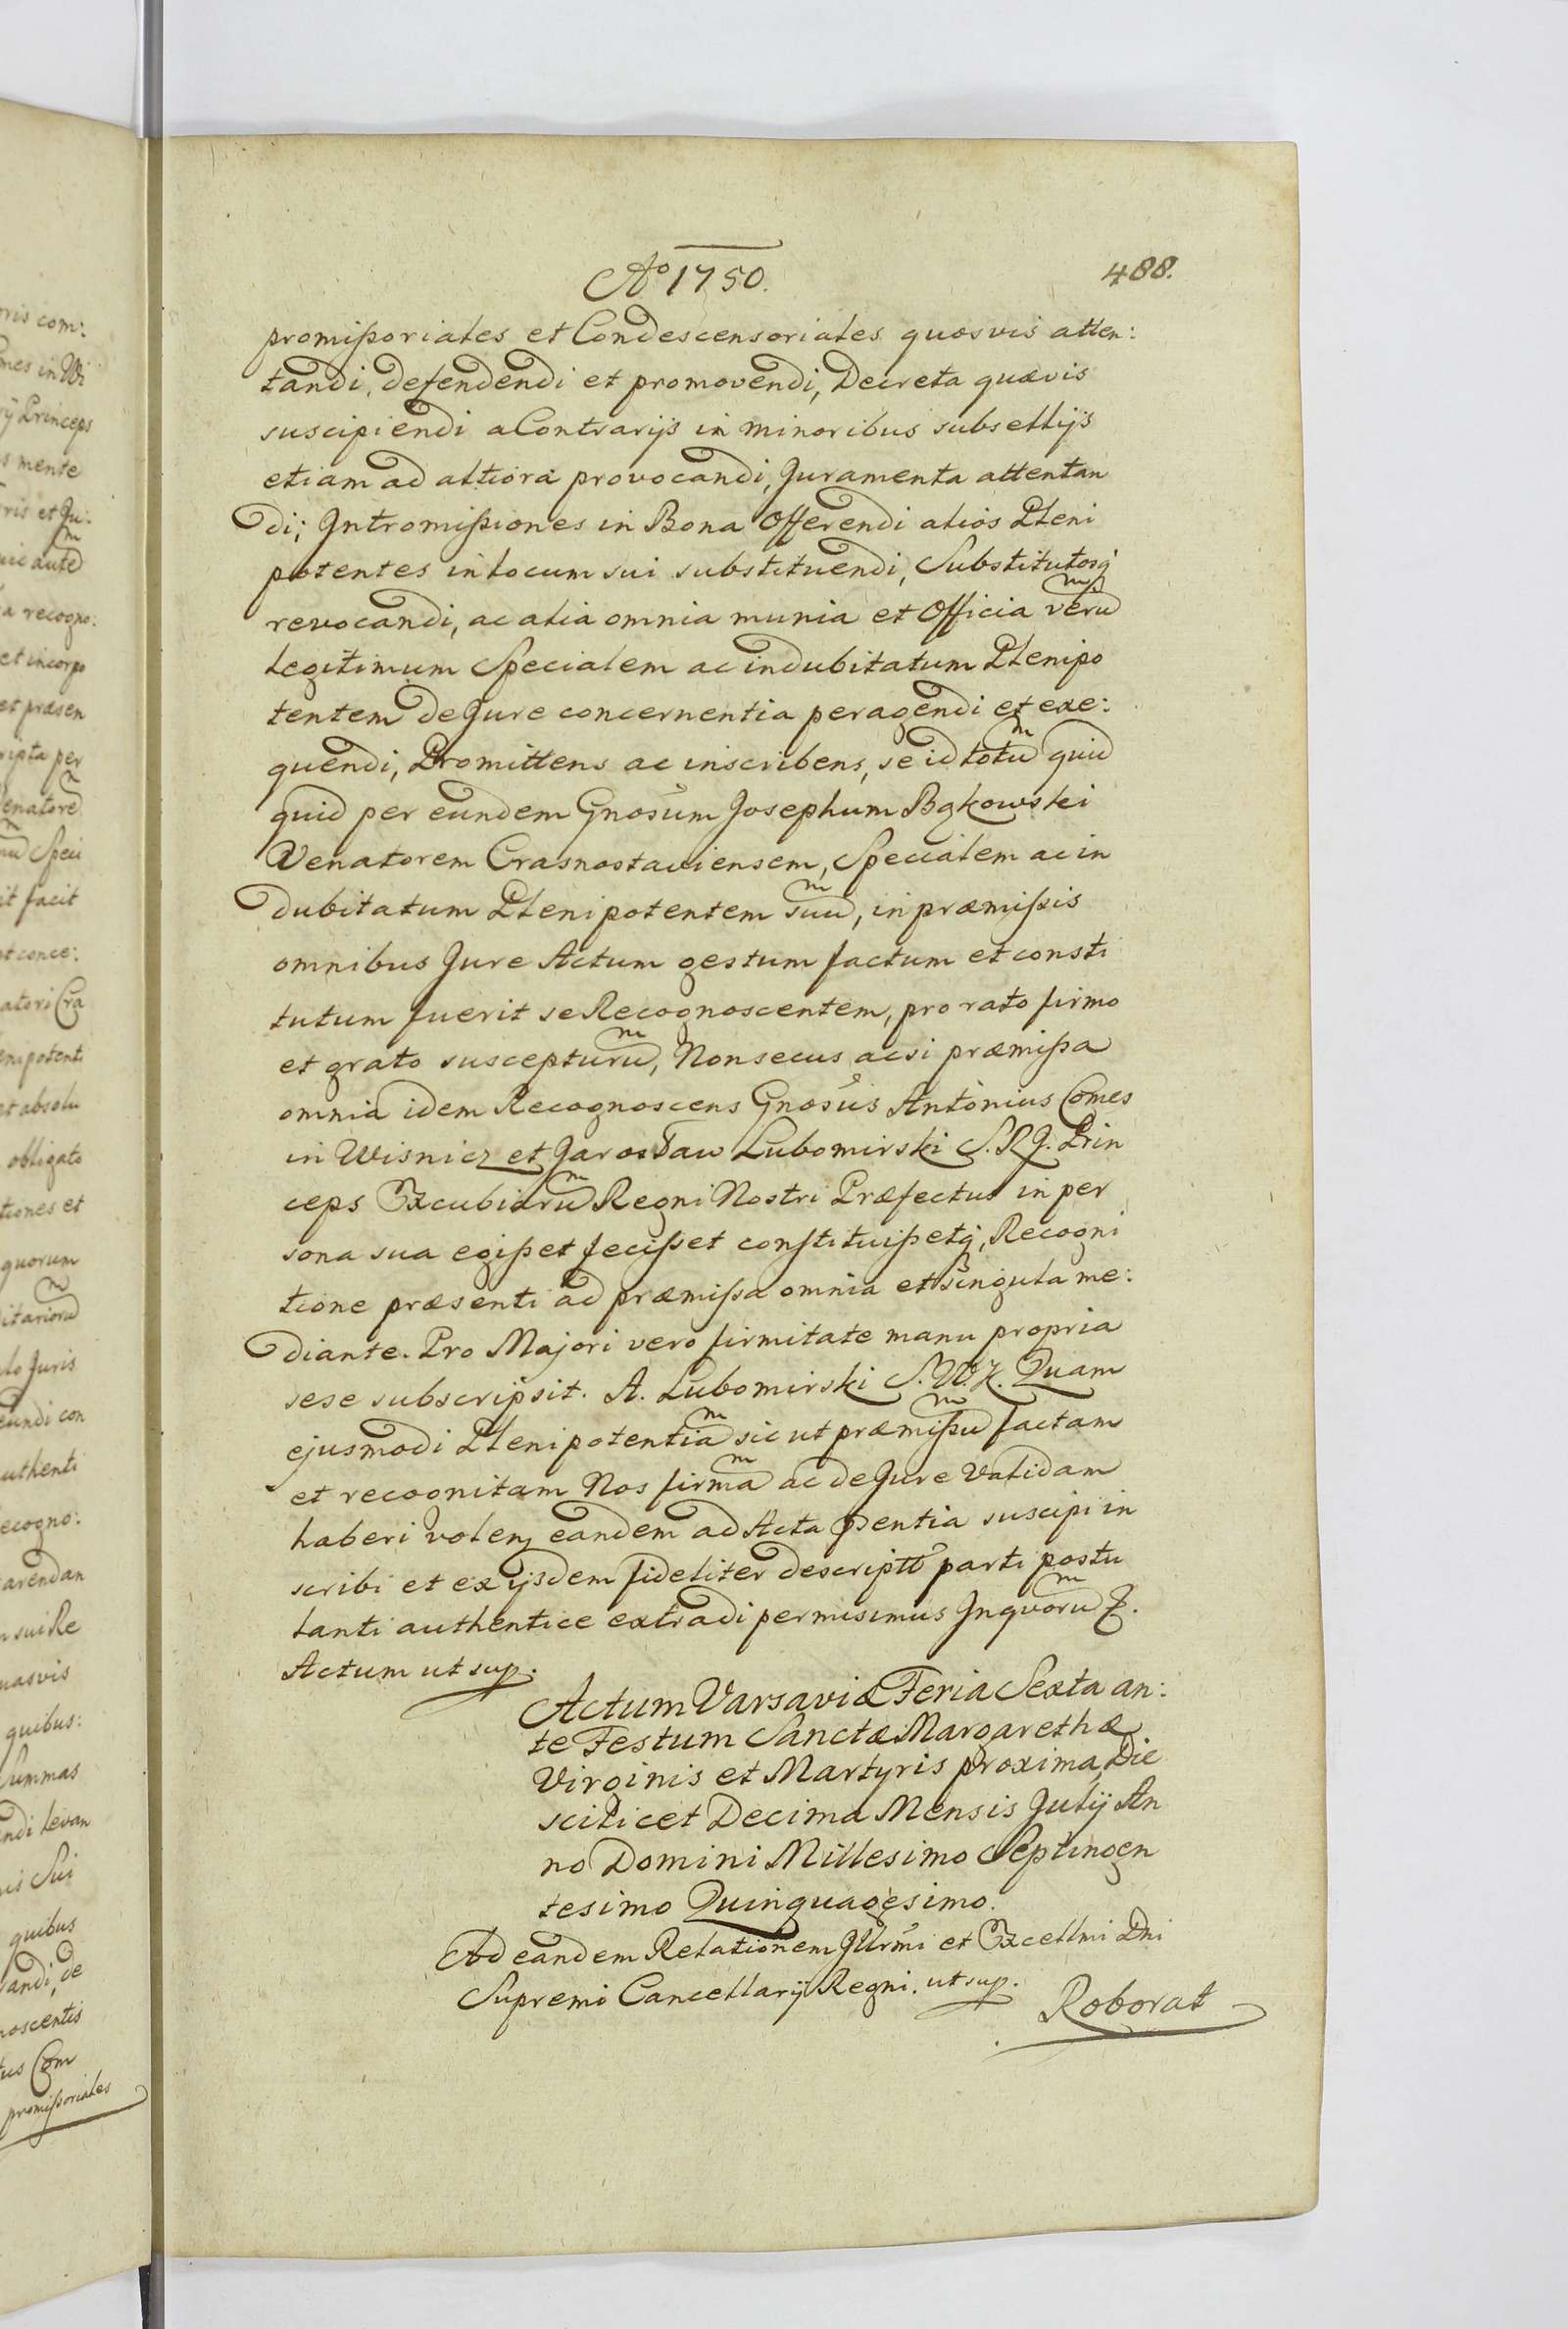 Ao 1750.
488.
promißoriales et Condescensoriales quosvis atten:
tandi, defendendi et promovendi, Decreta quævis
suscipiendi a Contrarijs in minoribus subsellijs
etiam ad altiora provocandi, Juramenta attentan
di; Intromißiones in Bona Offerendi alios Pleni
potentes in locum sui substituendi, Substitutosq́
revocandi, ac alia omnia munia et Officia verum
legitimum Specialem ac indubitatum Plenipo
tentem de Jure concernentia peragendi et exe:
quendi, Promittens ac inscribens, se id totum quid
quid per eundem Gnosum Josephum Bąkowski
Venatorem Crasnostaviensem, Specialem ac in
dubitatum Plenipotentem suum, in præmißis
omnibus Jure Actum gestum factum et consti
tutum fuerit se Recognoscentem, pro rato firmo
et grato suscepturum, Non secus ac si præmißa
omnia idem Recognoscens Gnosus Antonius Comes
in Wisnicz et Jarosław Lubomirski S. R. J. Prin
ceps Excubiarum Regni Nostri Præfectus in per
sona sua egißet fecißet constituißetq́, Recogni
tione præsenti ad præmißa omnia et singula me:
diante. Pro Majori vero firmitate manu propria
sese subscripsit. A. Lubomirski S. W. K. Quam
ejusmodi Plenipotentiam sic ut præmißum factam
et recognitam Nos firmam ac de Jure Validam
haberi volen eandem ad Acta pñentia suscipi in
scribi et ex ijsdem fideliter descriptt parti postu
lanti authentice extradi permisimus Inquorum &.
Actum ut sup.
Actum Varsaviæ Feria Sexta an:
te Festum Sanctæ Margarethæ
Virginis et Martyris proxima, Die
scilicet Decima Mensis Julij An
no Domini Millesimo Septingen
tesimo Quinquagesimo.
Ad eandem Relationem Jllrmi et Excellmi Dni
Supremi Cancellarij Regni. ut sup.
Roborat